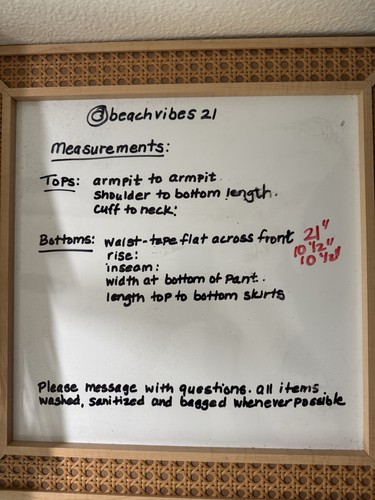 @beachvibes 21
Measurements:
Tops: armpit to armpit.
shoulder to bottom length.
cuff to neck:
Bottoms: waist-tape flat across front 21"
rise: 10 1/2"
inseam: 10 1/2"
width at bottom of pant.
length top to bottom skirts
Please message with questions. all items
washed, sanitized and bagged whenever possible